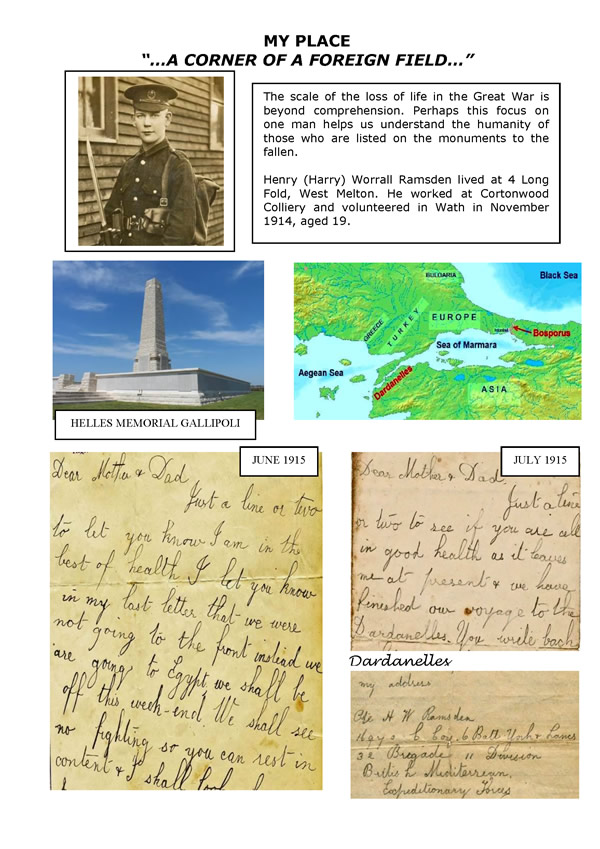 MY PLACE
“…A CORNER OF A FOREIGN FIELD…”
The scale of the loss of life in the Great War is
beyond comprehension. Perhaps this focus on
one man helps us understand the humanity of
those who are listed on the monuments to the
fallen.
Henry (Harry) Worrall Ramsden lived at 4 Long
Fold, West Melton. He worked at Cortonwood
Colliery and volunteered in Wath in November
1914, aged 19.
HELLES MEMORIAL GALLIPOLI
BULGARIA
Black Sea
GREECE
TURKEY
EUROPE
Istanbul
Bosporus
Sea of Marmara
Aegean Sea
Dardanelles
ASIA
JUNE 1915
Dear Mother & Dad
Just a line or two
to let you know I am in the
best of health I let you know
in my last letter that we were
not going to the front instead we
are going to Egypt, we shall be
off this week-end. We shall see
no fighting so you can rest in
content & I shall
JULY 1915
Dear Mother & Dad
Just a line
or two to see if you are all
in good health as it leaves
me at present & we have
finished our voyage to the
Dardanelles. You write back
Dardanelles
my address
Pte H W Ramsden
C Coy, 6 Batt York & Lancs
32 Bregade 11 Division
British Mediterrean,
Expeditionary Forces